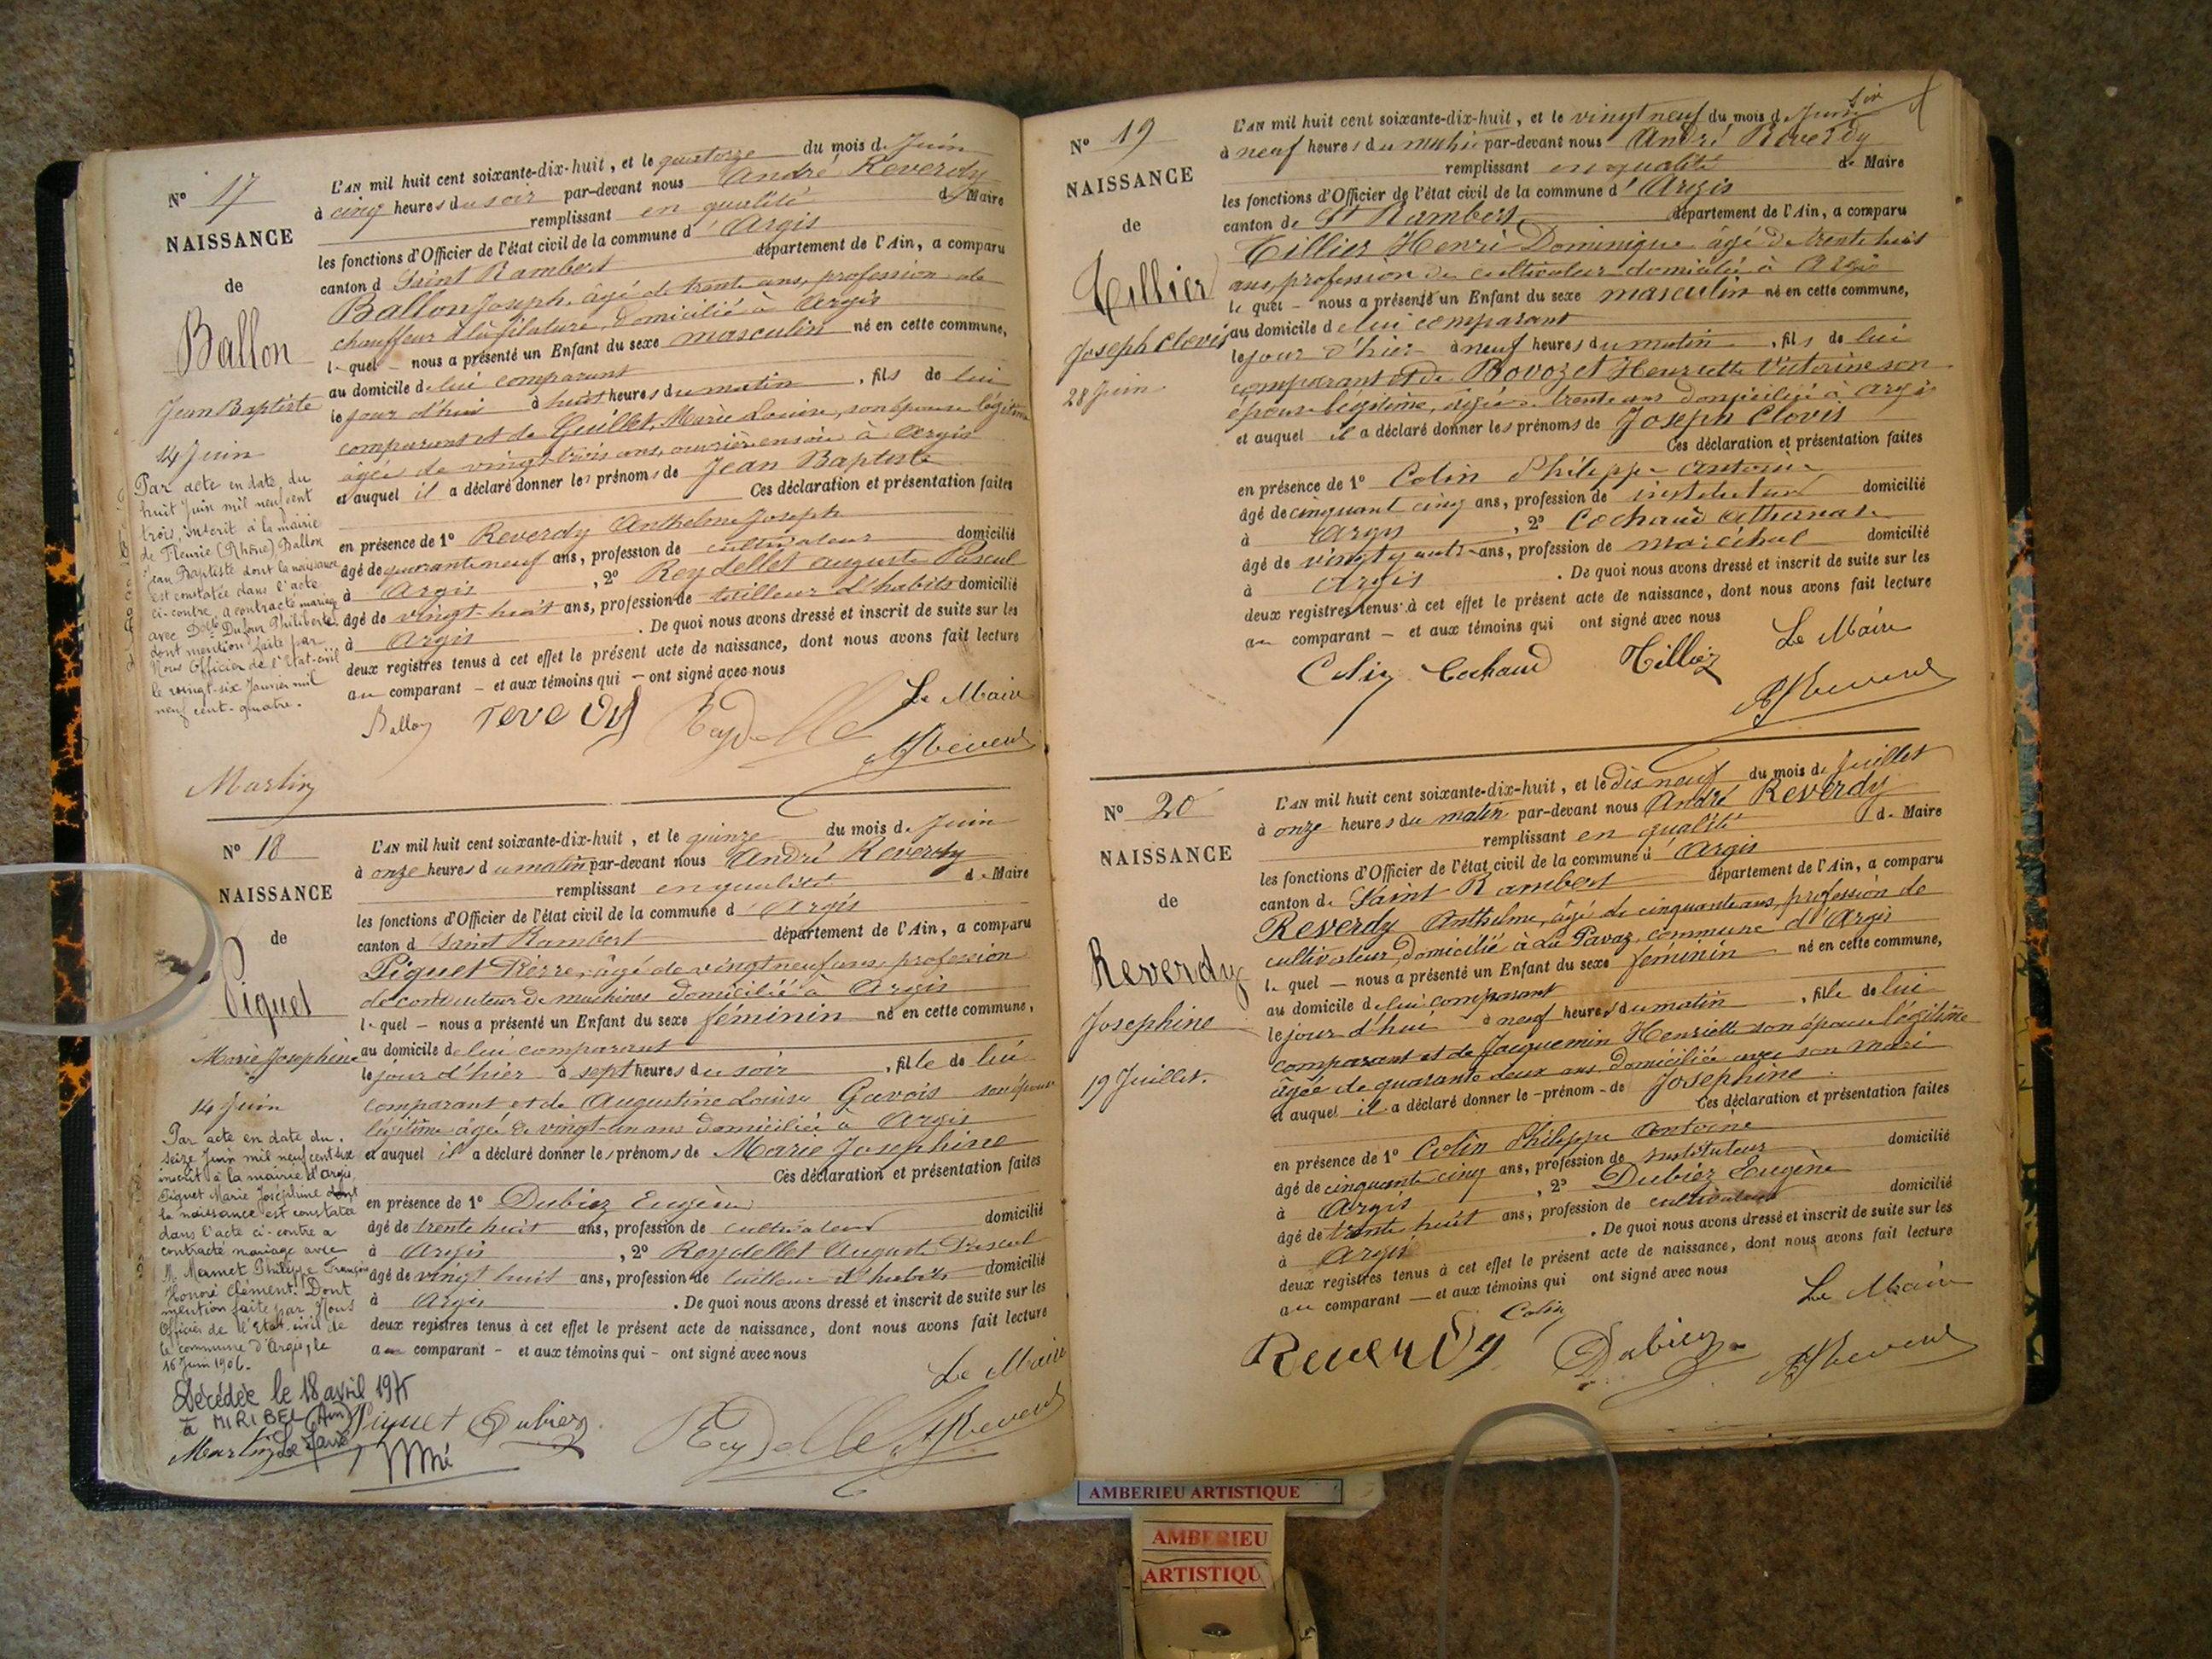 N° 17
NAISSANCE
de
Ballon
Jean Baptiste
14 Juin
Par acte en date du
huit Juin mil neuf cent
trois, inscrit à la mairie
de Fleurie (Rhône), Ballon
Jean Baptiste dont la naissance
est constatée dans l'acte
ci-contre, a contracté mariage
avec Dlle Dufour Philiberte
dont mention faite par
Nous Officier de l'Etat-civil
le vingt-six Janvier mil
neuf cent-quatre.
Martin
L'AN mil huit cent soixante-dix-huit, et le quatorze du mois de Juin
à cinq heures du soir par-devant nous André Reverdy
remplissant en qualité de Maire
les fonctions d'Officier de l'état civil de la commune d'Argis
canton d Saint Rambert département de l'Ain, a comparu
Ballon Joseph, âgé de trente ans, profession de
chauffeur à la filature, domicilié à Argis
lequel nous a présenté un Enfant du sexe masculin né en cette commune,
au domicile de lui comparant
le jour d'hui à huit heures du matin, fils de lui
comparant et de Guillet, Marie Louise, son épouse légitime
âgée de vingt trois ans, ouvrière en soie à Argis
et auquel il a déclaré donner les prénoms de Jean Baptiste
Ces déclaration et présentation faites
en présence de 1° Reverdy Anthelme Joseph
âgé de quarante neuf ans, profession de cultivateur domicilié
à Argis, 2° Reydellet Auguste Pascal
âgé de vingt-huit ans, profession de tailleur d'habits domicilié
à Argis. De quoi nous avons dressé et inscrit de suite sur les
deux registres tenus à cet effet le présent acte de naissance, dont nous avons fait lecture
au comparant – et aux témoins qui – ont signé avec nous
Le Maire
Ballon
N° 18
NAISSANCE
de
Piquet
Marie Josephine
14 Juin
Par acte en date du
seize Juin mil neuf cent six
inscrit à la mairie d'Argis,
Piquet Marie Joséphine dont
la naissance est constatée
dans l'acte ci-contre a
contracté mariage avec
M. Mamet Philippe François
Honoré Clément. Dont
mention faite par Nous
Officier de l'Etat-civil de
la commune d'Argis, le
16 Juin 1906.
Décédée le 18 avril 1975
à MIRIBEL (Ain)
Martin Le Maire
L'AN mil huit cent soixante-dix-huit, et le quinze du mois de Juin
à onze heures du matin par-devant nous André Reverdy
remplissant en qualité de Maire
les fonctions d'Officier de l'état civil de la commune d'Argis
canton d Saint Rambert département de l'Ain, a comparu
Piquet Pierre âgé de vingt neuf ans, profession
de conducteur de machines domicilié à Argis
lequel – nous a présenté un Enfant du sexe féminin né en cette commune,
au domicile de lui comparant
le jour d'hier à sept heures du soir, fille de lui
comparant et de Augustine Louise Gavois son épouse
légitime âgée de vingt-un ans domiciliée à Argis
et auquel il a déclaré donner les prénoms de Marie Josephine
Ces déclaration et présentation faites
en présence de 1° Dubiez Eugène
âgé de trente huit ans, profession de cultivateur domicilié
à Argis, 2° Reydellet Auguste Pascal
âgé de vingt huit ans, profession de tailleur d'habits domicilié
à Argis. De quoi nous avons dressé et inscrit de suite sur les
deux registres tenus à cet effet le présent acte de naissance, dont nous avons fait lecture
au comparant – et aux témoins qui – ont signé avec nous
Le Maire
Piquet Dubiez
N° 19
NAISSANCE
de
Tillier
Joseph Clovis
28 Juin
L'AN mil huit cent soixante-dix-huit, et le vingt neuf du mois de Juin
à neuf heures du matin par-devant nous André Reverdy
remplissant en qualité de Maire
les fonctions d'Officier de l'état civil de la commune d'Argis
canton de St Rambert département de l'Ain, a comparu
Tillier Henri Dominique âgé de trente huit
ans, profession de cultivateur domicilié à Argis
lequel – nous a présenté un Enfant du sexe masculin né en cette commune,
au domicile de lui comparant
le jour d'hier à neuf heures du matin, fils de lui
comparant et de Bovozet Henriette Victorine son
épouse légitime, âgée de trente ans domiciliée à Argis
et auquel il a déclaré donner les prénoms de Joseph Clovis
Ces déclaration et présentation faites
en présence de 1° Colin Philippe Antoine
âgé de cinquante cinq ans, profession de instituteur domicilié
à Argis, 2° Cochaud Athanase
âgé de ans, profession de maréchal domicilié
à Argis. De quoi nous avons dressé et inscrit de suite sur les
deux registres tenus à cet effet le présent acte de naissance, dont nous avons fait lecture
au comparant – et aux témoins qui ont signé avec nous
Le Maire
Colin Cochaud Tillier
N° 20
NAISSANCE
de
Reverdy
Josephine
19 Juillet.
L'AN mil huit cent soixante-dix-huit, et le dix neuf du mois de Juillet
à onze heures du matin par-devant nous André Reverdy
remplissant en qualité de Maire
les fonctions d'Officier de l'état civil de la commune d'Argis
canton de Saint Rambert département de l'Ain, a comparu
Reverdy Anthelme, âgé de cinquante ans, profession de
cultivateur, domicilié à La Pavaz, commune d'Argis
lequel – nous a présenté un Enfant du sexe féminin né en cette commune,
au domicile de lui comparant
le jour d'hui à neuf heures du matin, fille de lui
comparant et de Jacquemin Henriette son épouse légitime
âgée de quarante deux ans domiciliée avec son mari
et auquel il a déclaré donner le prénom de Josephine
Ces déclaration et présentation faites
en présence de 1° Colin Philippe Antoine
âgé de cinquante cinq ans, profession de instituteur domicilié
à Argis, 2° Dubiez Eugène
âgé de trente huit ans, profession de cultivateur domicilié
à Argis. De quoi nous avons dressé et inscrit de suite sur les
deux registres tenus à cet effet le présent acte de naissance, dont nous avons fait lecture
au comparant – et aux témoins qui ont signé avec nous
Le Maire
Colin
Reverdy Dubiez
AMBERIEU ARTISTIQUE
AMBERIEU
ARTISTIQU